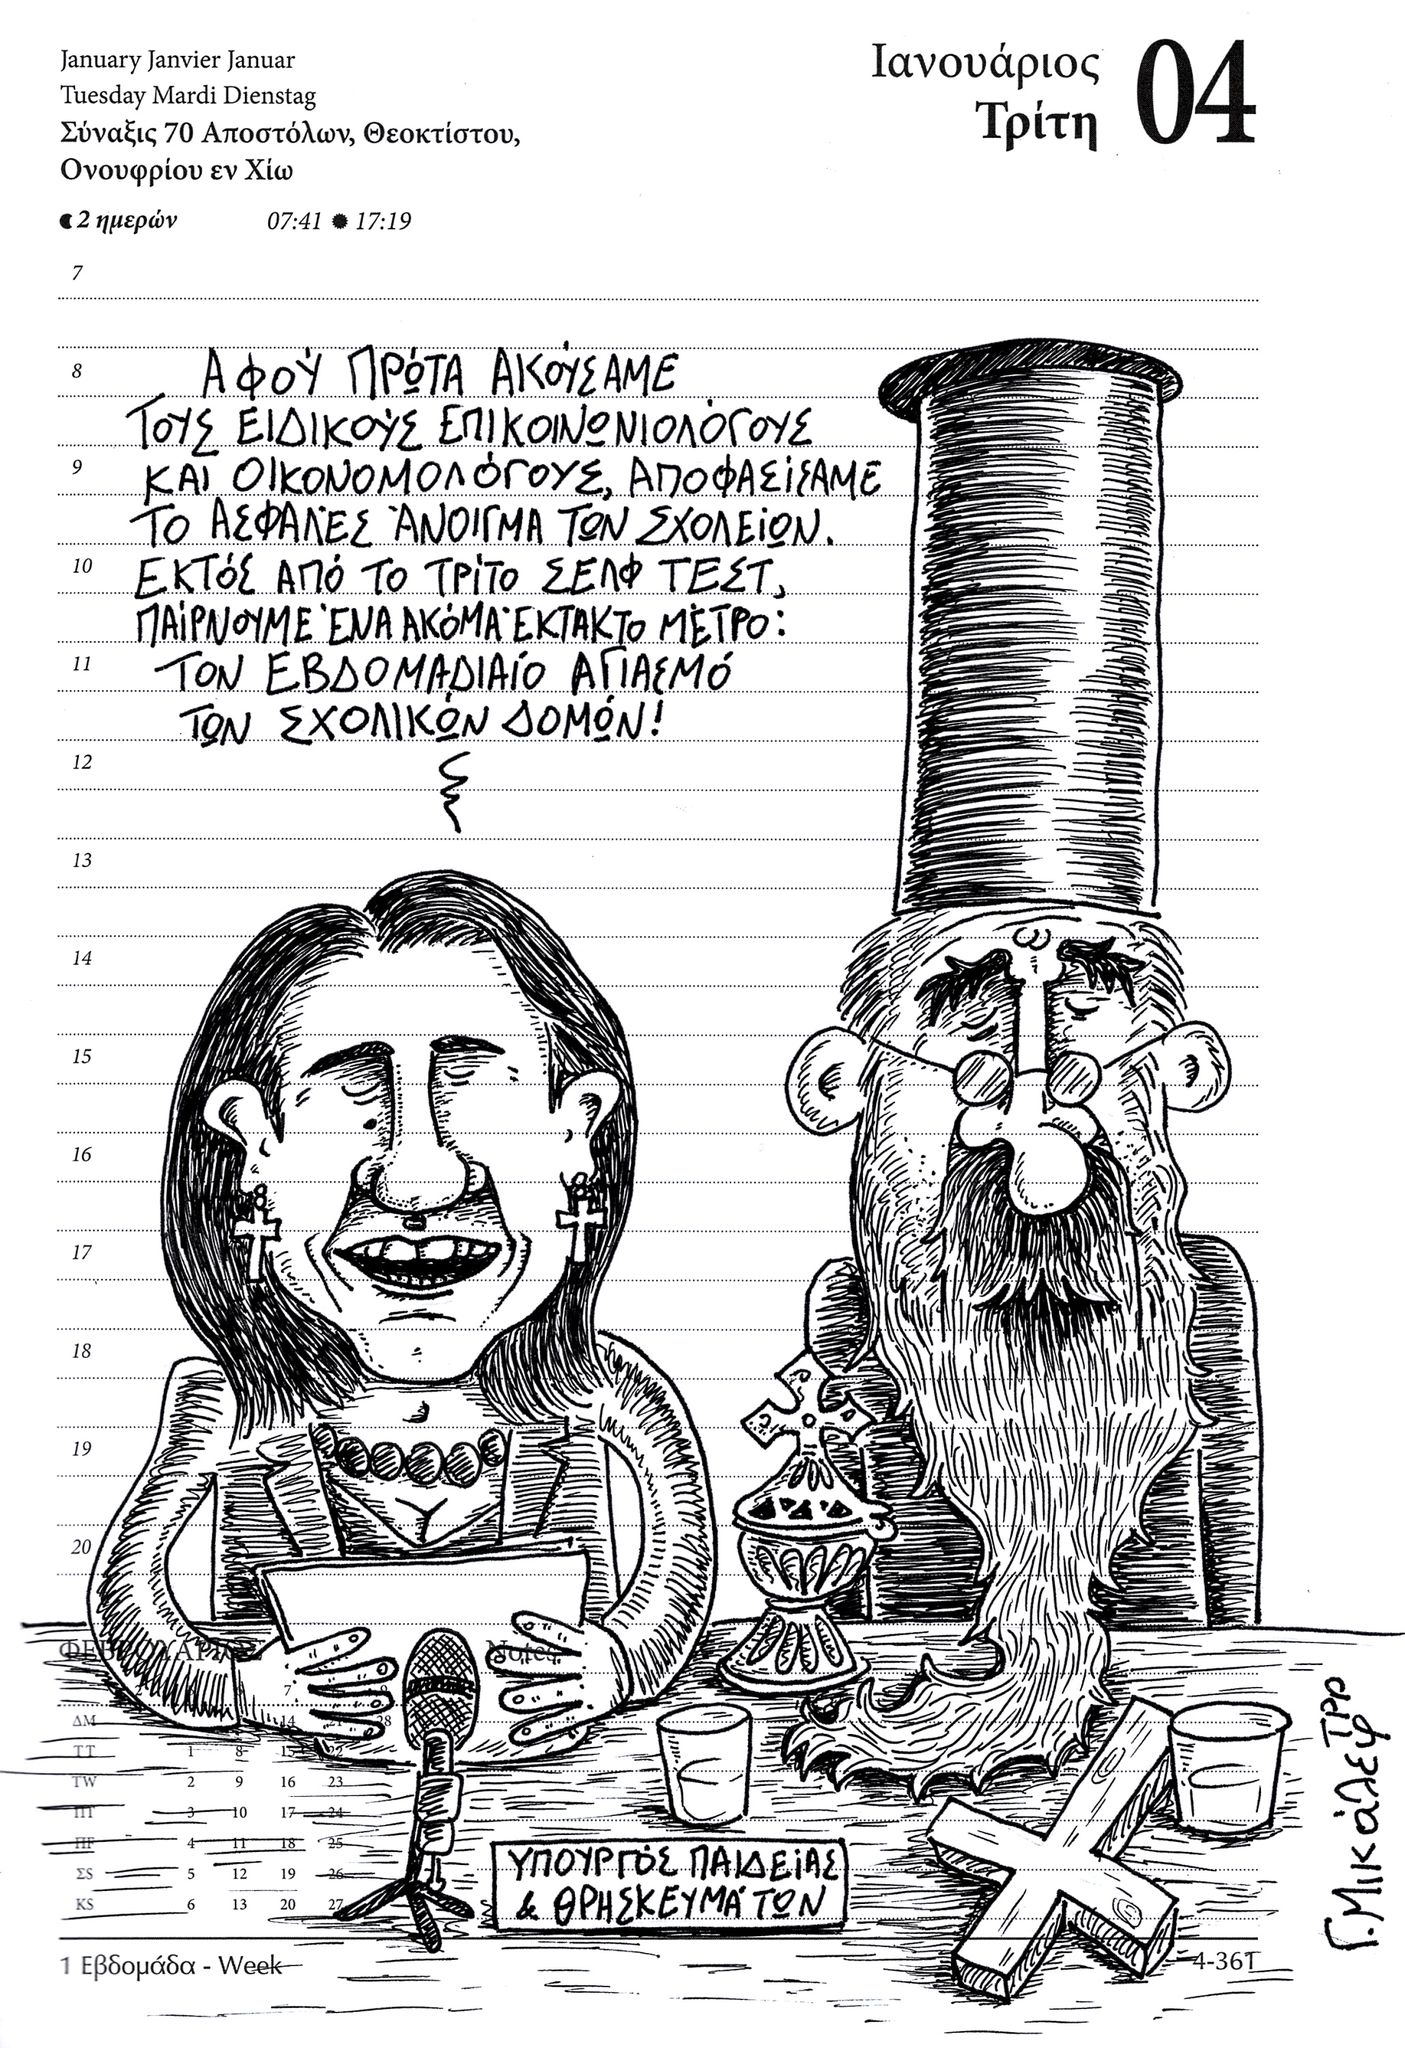 January Janvier Januar
Tuesday Mardi Dienstag
Σύναξις 70 Αποστόλων, Θεοκτίστου,
Ονουφρίου εν Χίω
2 ημερών 07:41 17:19
Ιανουάριος
Τρίτη
04
7
8
9
10
11
12
13
14
15
16
17
18
19
20
ΑΦΟΎ ΠΡΏΤΑ ΑΚΟΎΣΑΜΕ
ΤΟΥΣ ΕΙΔΙΚΟΎΣ ΕΠΙΚΟΙΝΩΝΙΟΛΌΓΟΥΣ
ΚΑΙ ΟΙΚΟΝΟΜΟΛΌΓΟΥΣ, ΑΠΟΦΑΣΊΣΑΜΕ
ΤΟ ΑΣΦΑΛΈΣ ΆΝΟΙΓΜΑ ΤΩΝ ΣΧΟΛΕΊΩΝ.
ΕΚΤΌΣ ΑΠΌ ΤΟ ΤΡΊΤΟ ΣΕΛΦ ΤΕΣΤ,
ΠΑΊΡΝΟΥΜΕ ΈΝΑ ΑΚΌΜΑ ΈΚΤΑΚΤΟ ΜΈΤΡΟ:
ΤΟΝ ΕΒΔΟΜΑΔΙΑΊΟ ΑΓΙΑΣΜΌ
ΤΩΝ ΣΧΟΛΙΚΏΝ ΔΟΜΏΝ!
ΦΕΒΡΟΥΑΡΙΟΣ Notes
7
ΔΜ 14 21 28
ΤΤ 1 8 15 22
TW 2 9 16 23
ΠΤ 3 10 17 24
ΠF 4 11 18 25
ΣS 5 12 19 26
KS 6 13 20 27
ΥΠΟΥΡΓΌΣ ΠΑΙΔΕΊΑΣ
& ΘΡΗΣΚΕΥΜΆΤΩΝ
1 Εβδομάδα - Week
4-361
Γ. Μικάλεφ